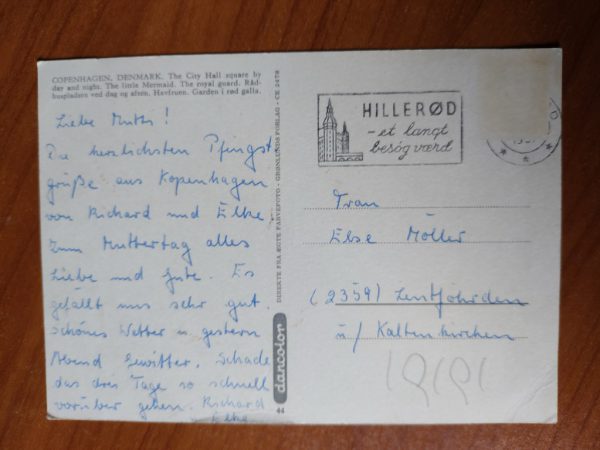 COPENHAGEN, DENMARK. The City Hall square by
day and night. The little Mermaid. The royal guard. Råd-
huspladsen ved dag og aften, Havfruen. Garden i rød galla.
Liebe Mutti!
Die herzlichsten Pfingst
grüße aus Kopenhagen
von Richard und Elke,
zum Muttertag alles
Liebe und Gute. Es
gefällt uns sehr gut.
schönes Wetter u. gestern
Abend Gewitter. Schade
das drei Tage so schnell
vorüber gehen. Richard
Elke
DIREKTE FRA ÆGTE FARVEFOTO - GRØNLUNDS FORLAG - CE
dancolor
44
HILLERØD
- et langt
besøg værd
Frau
Else Möller
(2359) Lentföhrden
ü/ Kaltenkirchen